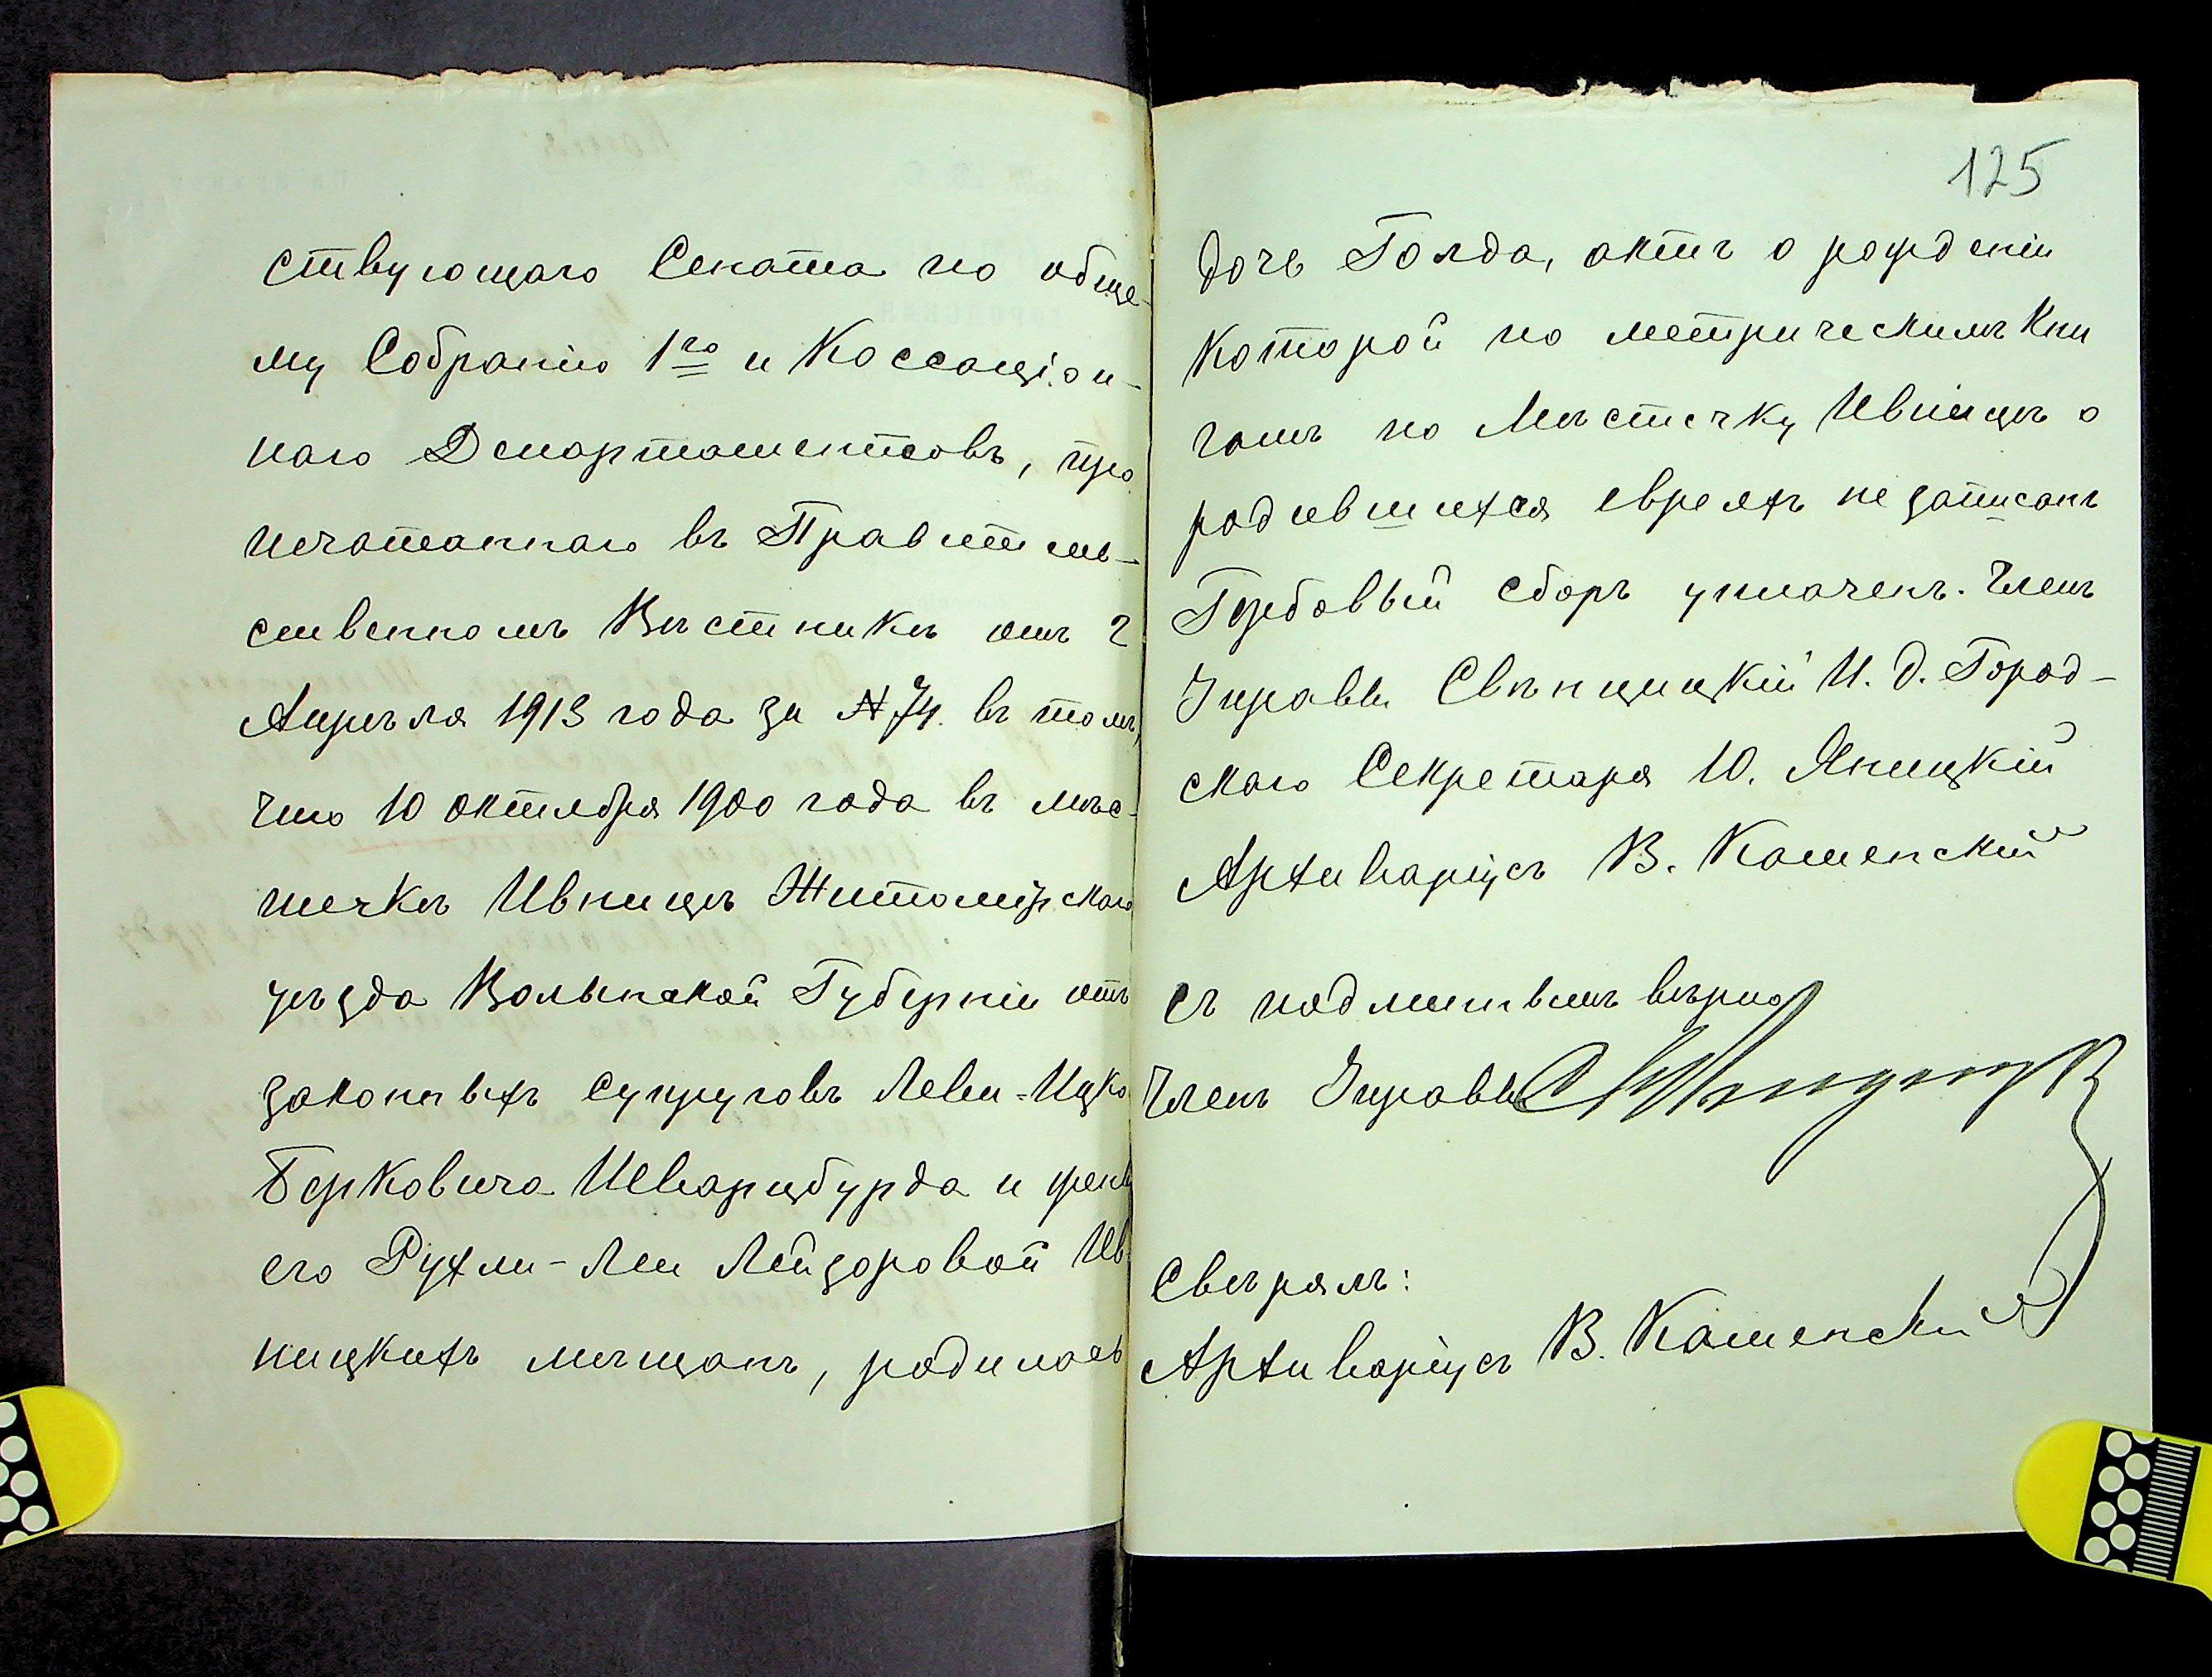 ствующаго Сената по обще-
му Собранію 1го и Кассаціон-
наго Департаментовъ, про
печатаннаго въ Правитель-
ственномъ Вѣстникѣ отъ 2
Апрѣля 1913 года за № 74. въ томъ,
что 10 октября 1900 года въ мѣс-
течкѣ Ивницѣ Житомірскаго
уѣзда Волынской Губерніи отъ
законныхъ супруговъ Леви-Ицко
Берковича Шварцбурда и жены
его Рухли-Леи Лейзоровой Ив-
ницкихъ мѣщанъ, родилась
125
дочь Голда, актъ о рожденіи
которой по метрическимъ кни
гамъ по Мѣстечку Ивницѣ о
родившихся евреяхъ не записанъ
Гербовый сборъ уплаченъ. Членъ
Управы Свѣнцицкій И. д. Город-
скаго Секретаря Ю. Яницкій
Архиваріусъ В. Каменскій
съ подлиннымъ вѣрно
Членъ Управы
Свѣрялъ:
Архиваріусъ В. Каменскій